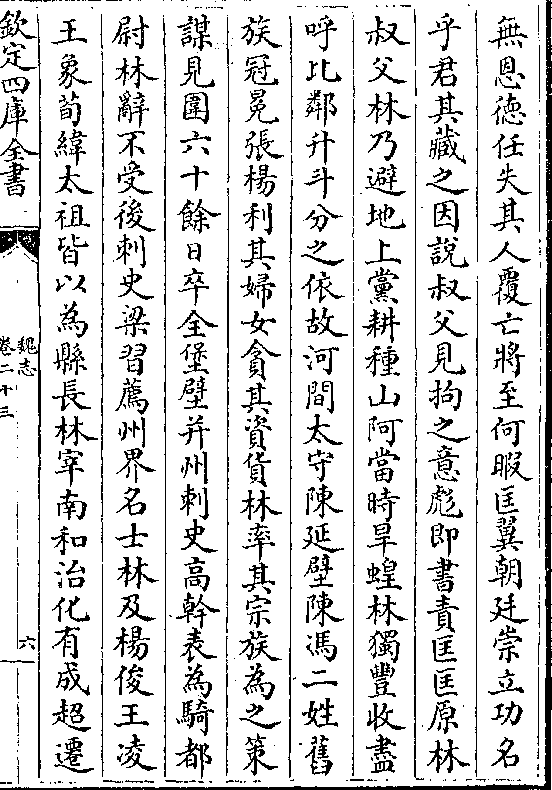 無恩徳任失其人覆亡將至何暇匡翼朝廷崇立功名
乎君其藏之因說叔父見拘之意彪即書責匡匡原林
叔父林乃避地上黨耕種山阿當時旱蝗林獨豐收盡
呼比鄰升斗分之依故河間太守陳延壁陳馮二姓舊
族冠冕張楊利其婦女貪其資貨林率其宗族為之策
謀見圍六十餘日卒全堡壁并州刺史高幹表為騎都
尉林辭不受後刺史梁習薦州界名士林及楊俊王凌
王象荀緯太祖皆以為縣長林宰南和治化有成超遷
欽定四庫全書
魏志
卷二十三
六